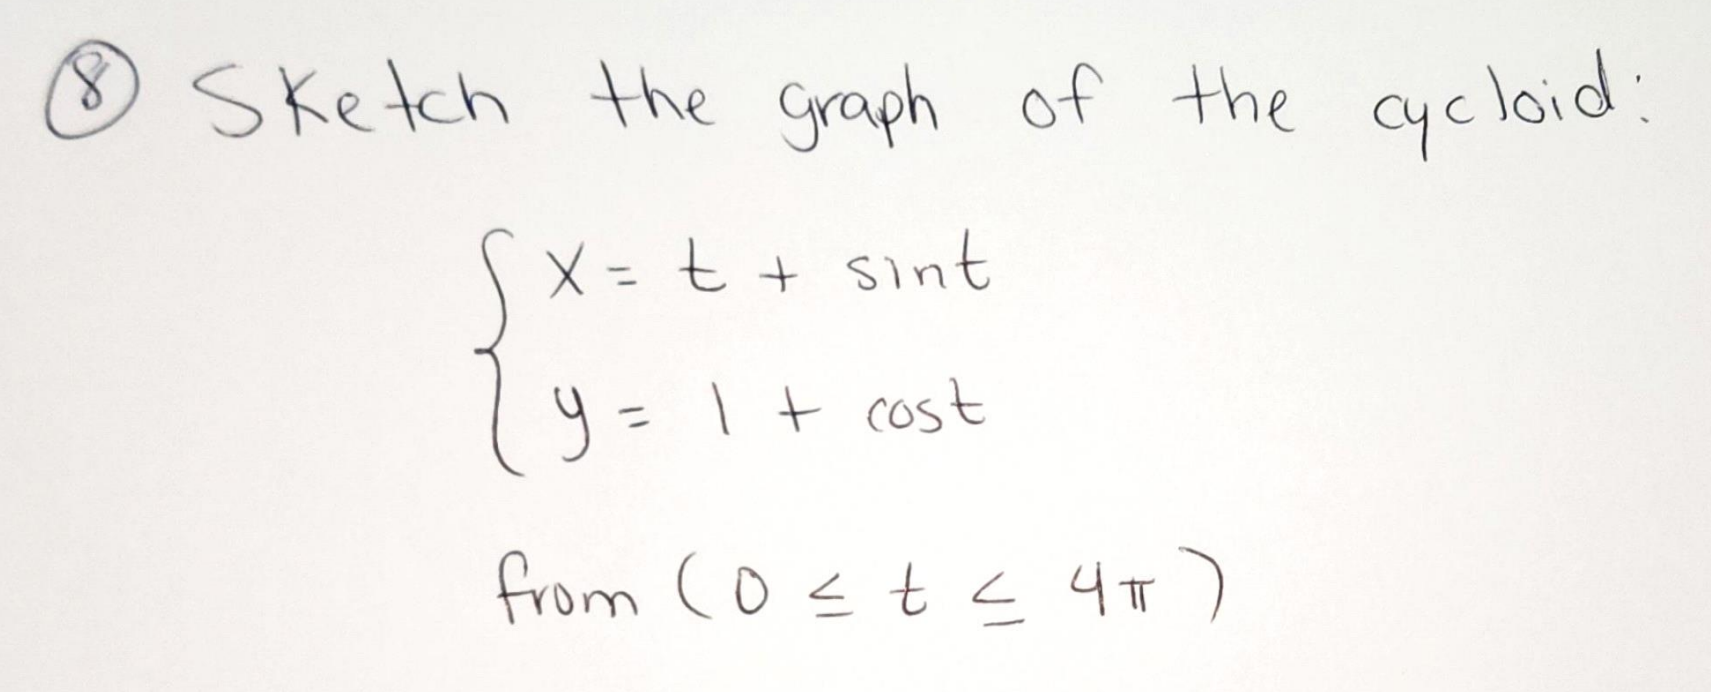 ⑧ Sketch the graph of the cycloid:
x = t + sint
y = 1 + cost
from (0 ≤ t ≤ 4π)